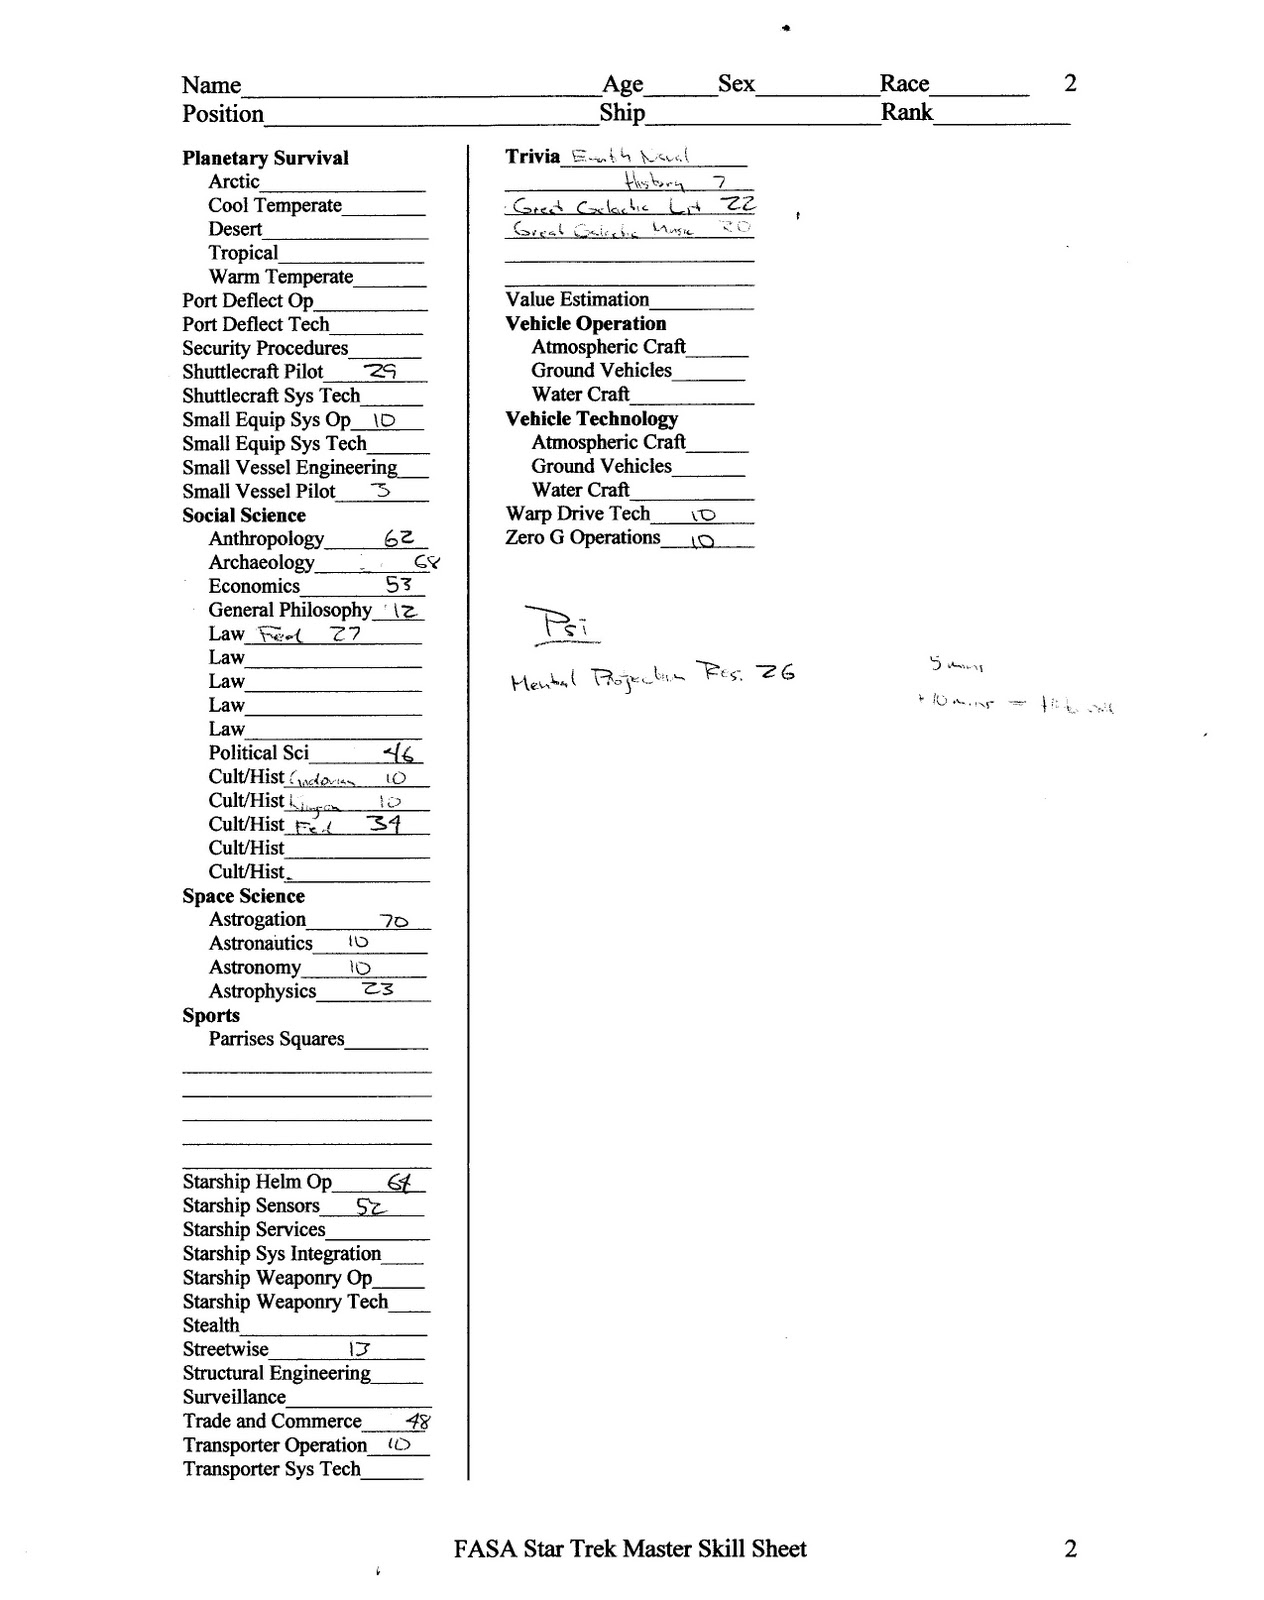 Name Age Sex Race 2
Position Ship Rank
Planetary Survival
Arctic
Cool Temperate
Desert
Tropical
Warm Temperate
Port Deflect Op
Port Deflect Tech
Security Procedures
Shuttlecraft Pilot 29
Shuttlecraft Sys Tech
Small Equip Sys Op 10
Small Equip Sys Tech
Small Vessel Engineering
Small Vessel Pilot 3
Social Science
Anthropology 62
Archaeology 68
Economics 53
General Philosophy 12
Law Fed 27
Law
Law
Law
Law
Political Sci 46
Cult/Hist 10
Cult/Hist Klingon 10
Cult/Hist Fed 34
Cult/Hist
Cult/Hist
Space Science
Astrogation 70
Astronautics 10
Astronomy 10
Astrophysics 23
Sports
Parrises Squares
Starship Helm Op 64
Starship Sensors 52
Starship Services
Starship Sys Integration
Starship Weaponry Op
Starship Weaponry Tech
Stealth
Streetwise 13
Structural Engineering
Surveillance
Trade and Commerce 48
Transporter Operation 10
Transporter Sys Tech
Trivia Earth Naval
History 7
Great Galactic Lit 22
Great Galactic Music 20
Value Estimation
Vehicle Operation
Atmospheric Craft
Ground Vehicles
Water Craft
Vehicle Technology
Atmospheric Craft
Ground Vehicles
Water Craft
Warp Drive Tech 10
Zero G Operations 10
Psi
Mental Projection Res. 26
5 mins
+10 mins =
FASA Star Trek Master Skill Sheet 2